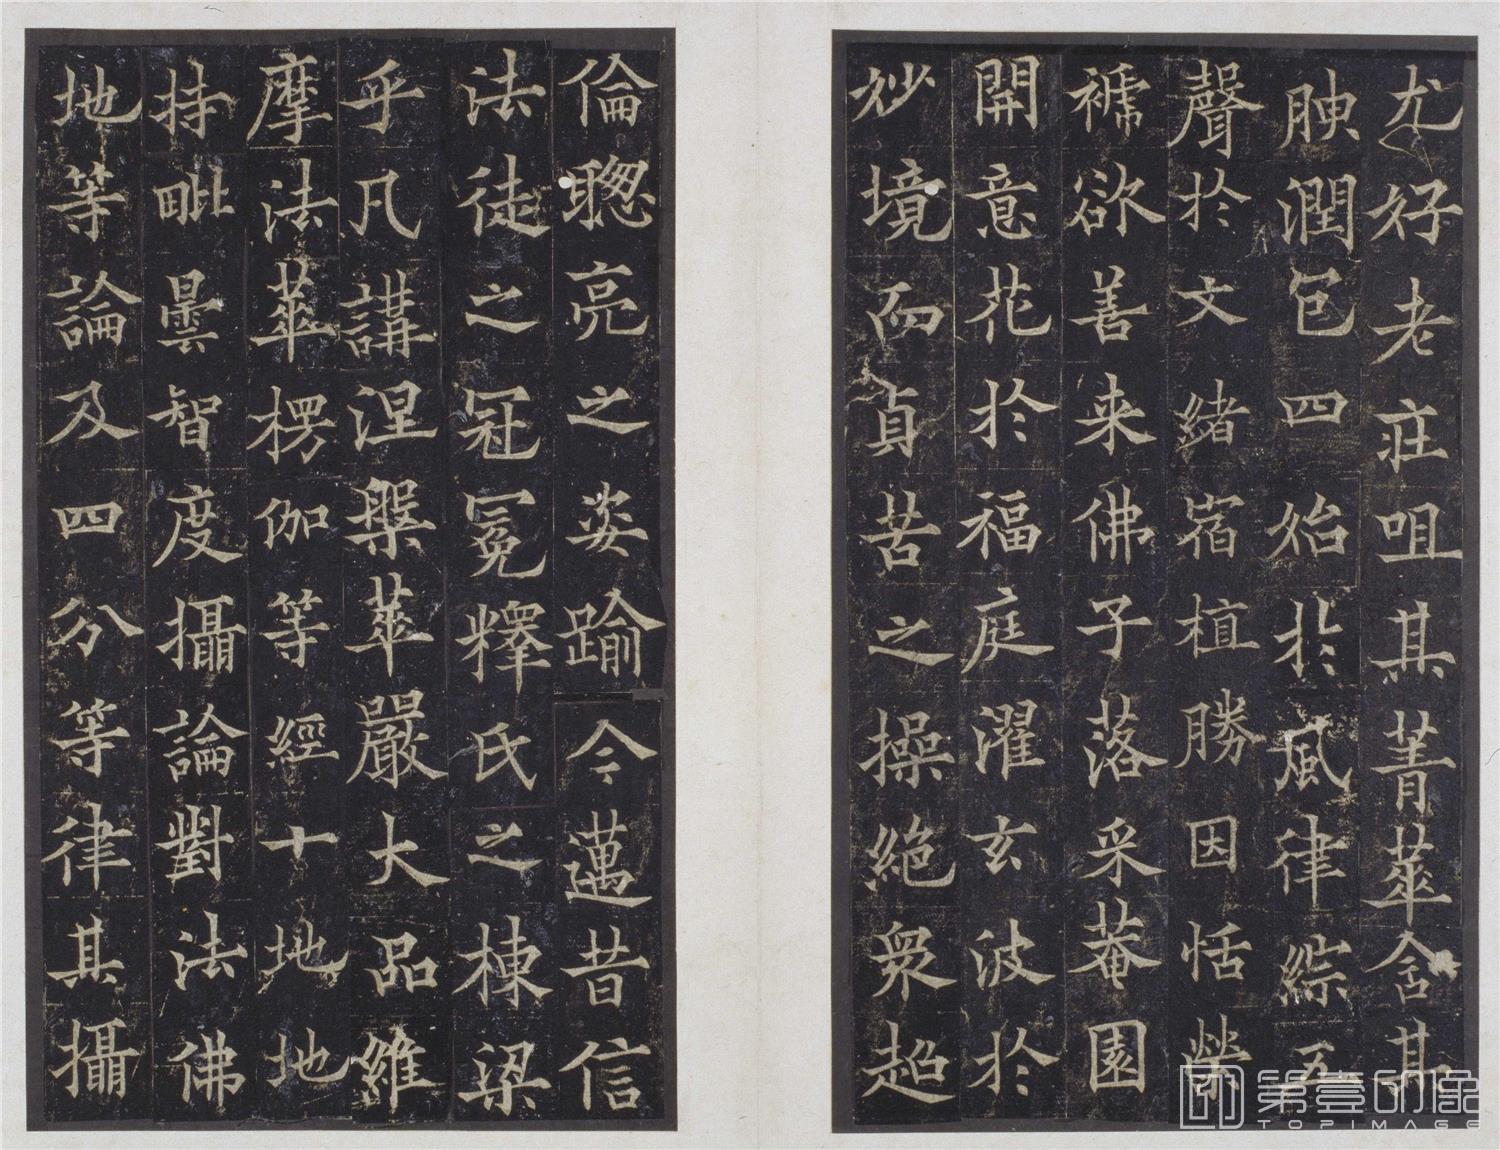 尤好老莊咀其菁華含其
腴潤包四始於風律綜五
聲於文緒宿植勝因恬榮
褫欲善来佛子落采菴園
開意花於福庭濯玄波於
妙境而貞苦之操絶衆超
倫聰亮之姿踰今邁昔信
法徒之冠冕釋氏之棟梁
乎凡講涅槃華嚴大品維
摩法華楞伽等經十地地
持毗曇智度攝論對法佛
地等論及四分等律其攝
第壹印象
TOPIMAGE